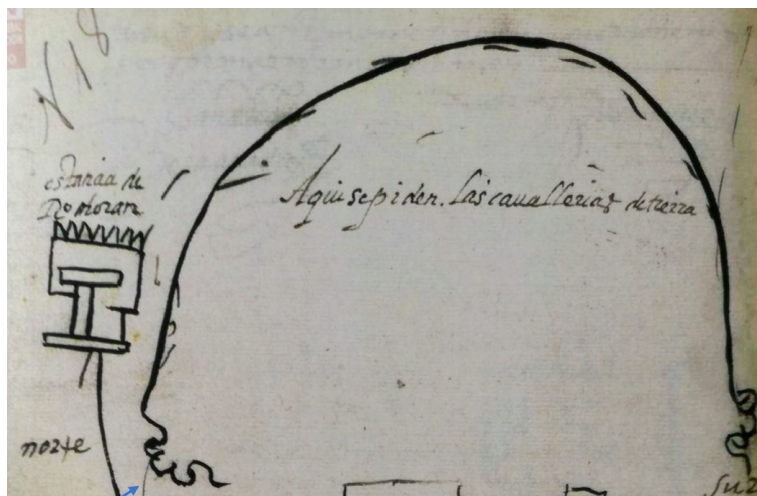 N 18
estançia de
Ro moran
Aqui se piden. las cavallerias de tierra
norte
sur